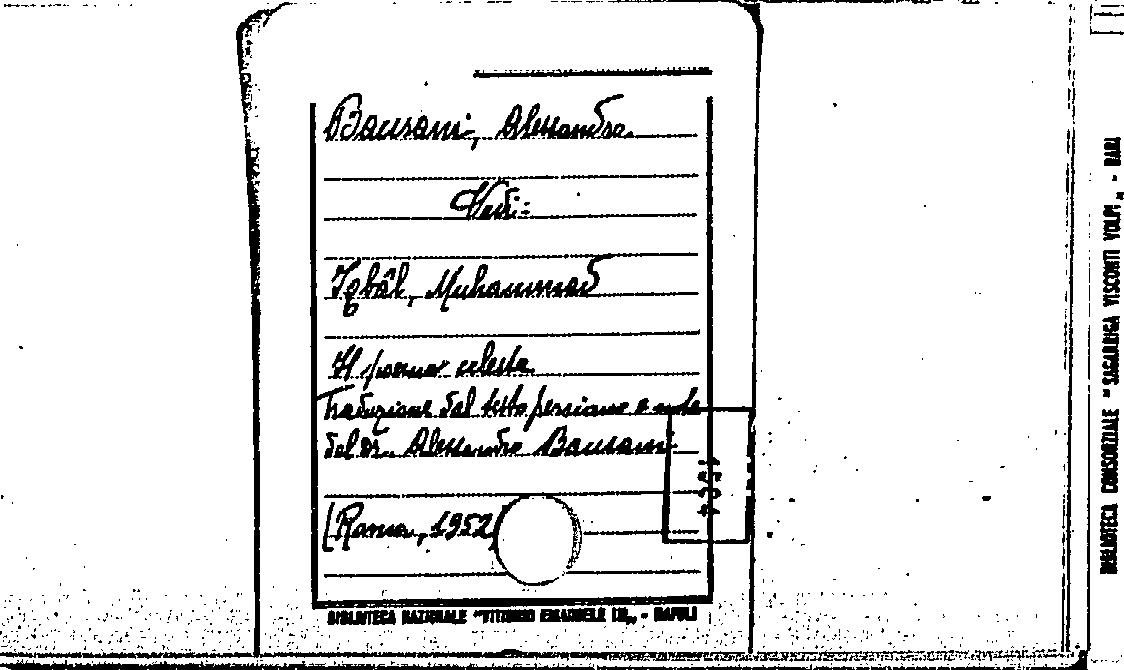 Bausani, Alessandro.
Vedi:
Iqbâl, Muhammad
Il poema celeste.
Traduzione dal testo persiano e note
del Dr. Alessandro Bausani
[Roma, 1952]
BIBLIOTECA NAZIONALE "VITTORIO EMANUELE III„ - NAPOLI
BIBLIOTECA CONSORZIALE "SAGARRIGA VISCONTI VOLPI„ - BARI